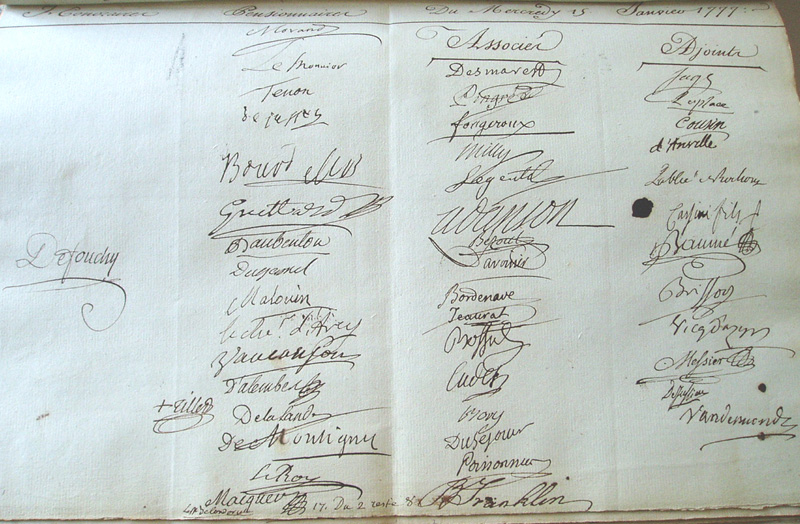 Pensionnaires
Du Mercredy 15 Janvier 1777.
Morand
Le Monnier
Tenon
de jussieu
Guettard
Daubenton
Duhamel
Malouin
le che.r d'Arcy
Vaucanson
Dalembert
Delalande
De Montigny
LeRoy
Macquer
17. Du 2 reste 82
Defouchy
tillet
Associés
Desmarest
Pingré
fougeroux
milly
Legentil
adanson
Bezout
Davoust
Bordenave
Jeaurat
Bossut
Cadet
Bory
DuSejour
Poissonnier
B Franklin
Adjoints
Sage
Laplace
Cousin
d'Anville
Cassini fils
Baumé
Brisson
Vicq dazyr
Messier
Vandermonde